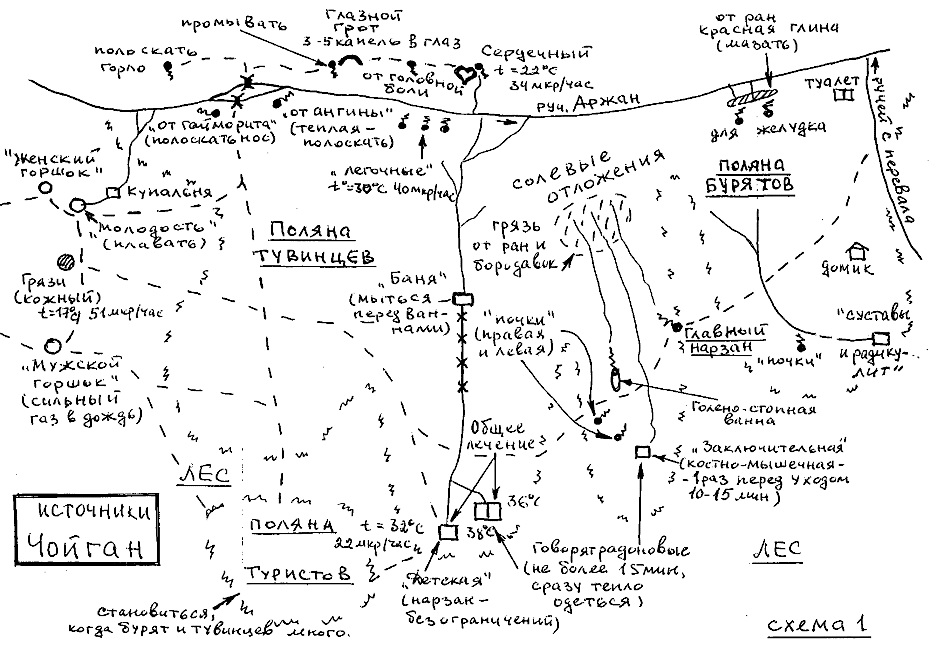 полоскать
горло
промывать
глазной
грот
3-5 капель в глаз
от головной
боли
Сердечный
t=22°C
34 мкр/час
руч. Аржан
от ран
красная глина
(мазать)
туалет
ручей с перевала
„от гайморита"
(полоскать нос)
„от ангины"
(теплая-
полоскать)
„легочные"
t°=30°C 40 мкр/час
для желудка
"Женский
горшок"
купальня
"Молодость"
(плавать)
Поляна
Тувинцев
солевые
отложения
Поляна
Бурятов
грязь
от ран и
бородавок
домик
Грязи
(кожный)
t=17°, 51 мкр/час
"Баня"
(мыться
перед ван-
нами)
"почки"
(правая
и левая)
Главный
нарзан
"почки"
"суставы
и радику-
лит"
"Мужской
горшок"
(сильный
газ в дождь)
Голено-стопная
ванна
Общее
лечение
„Заключительная"
(костно-мышечная-
- 1 раз перед уходом
10-15 мин)
Лес
источники
Чойган
Поляна
Туристов
t=32°C
22 мкр/час
38°C
36°C
Говорят радоновые
(не более 15 мин,
сразу тепло
одеться)
Лес
„Детская"
(нарзан-
без ограничений)
становиться,
когда бурят и тувинцев много.
схема 1